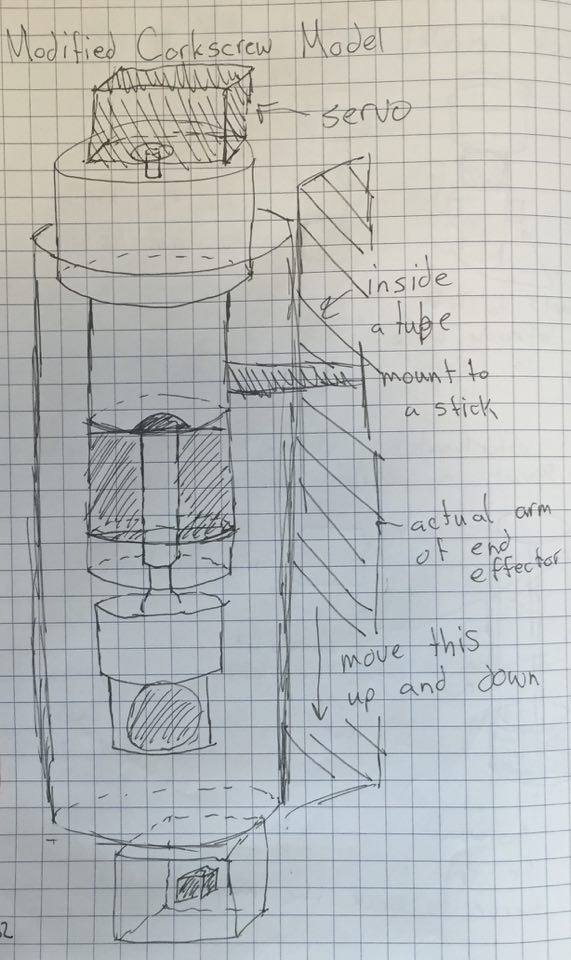 Modified Corkscrew Model
servo
inside
a tube
mount to
a stick
actual arm
of end
effector
move this
up and down